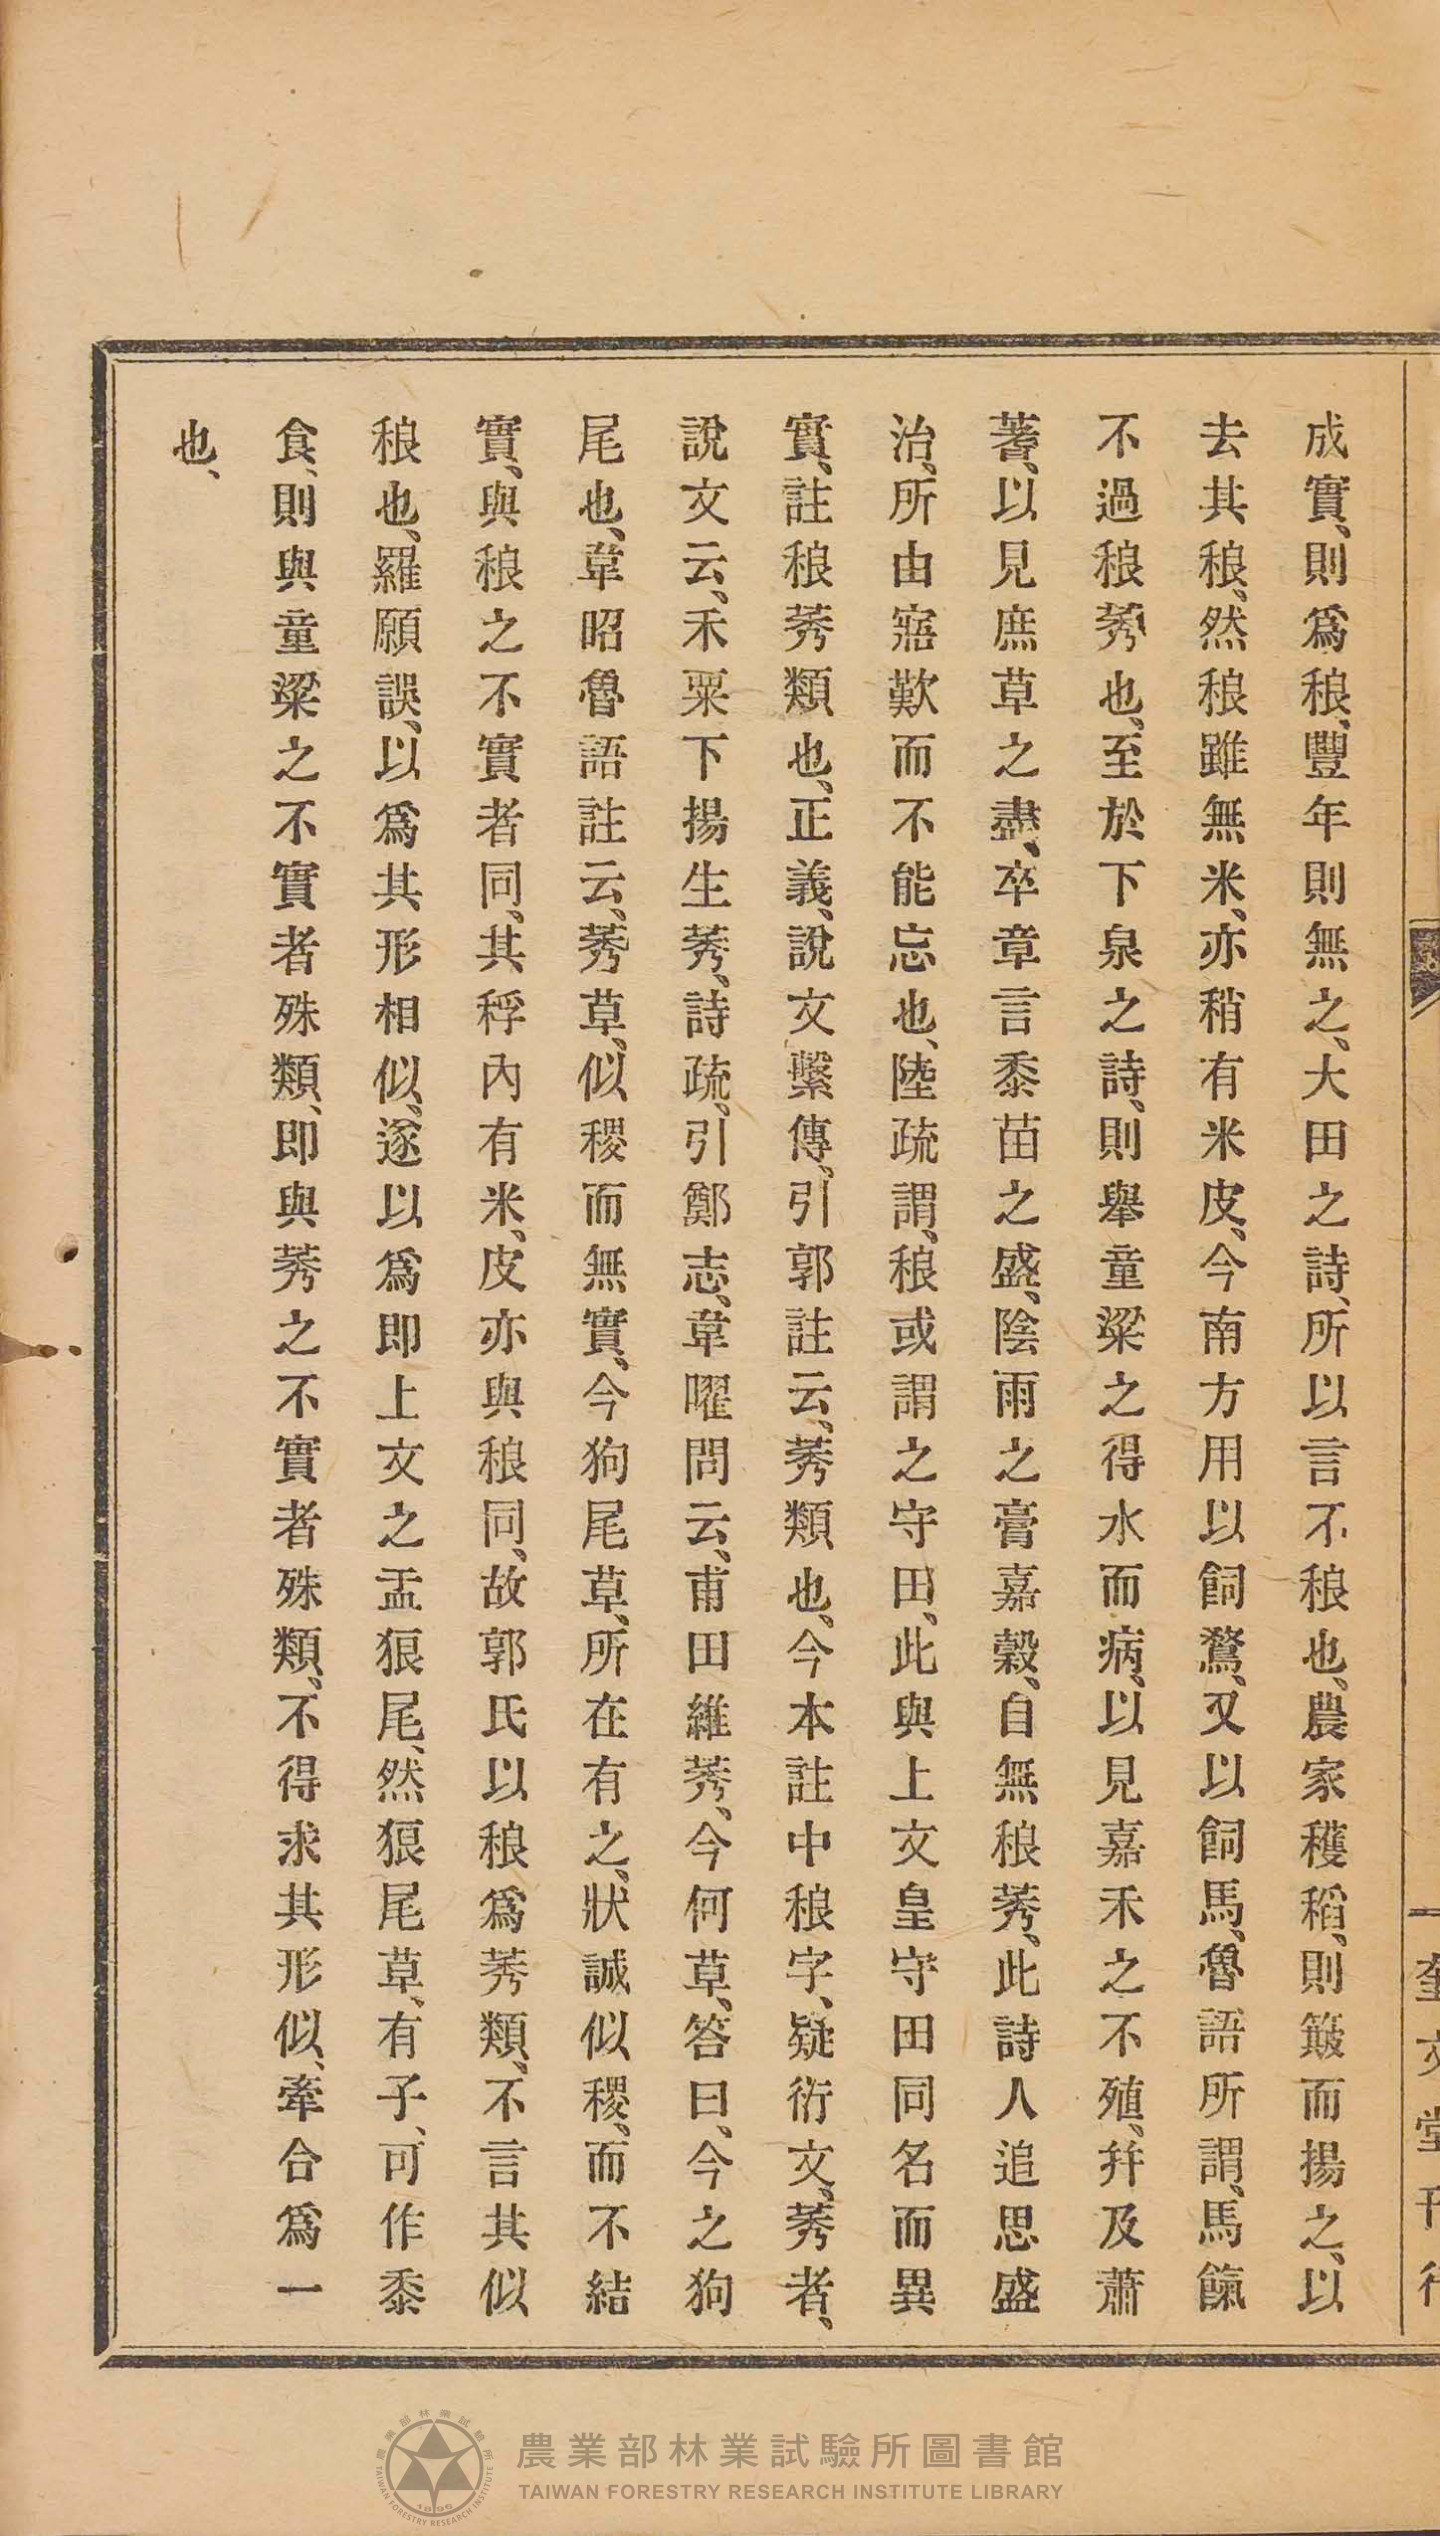 成實、則爲稂、豐年則無之、大田之詩、所以言不稂也、農家穫稻、則簸而揚之、以
去其稂、然稂雖無米、亦稍有米皮、今南方用以飼鶩、又以飼馬、魯語所謂、馬餼
不過稂莠也、至於下泉之詩、則舉童粱之得水而病、以見嘉禾之不殖、幷及蕭
蓍、以見庶草之盡、卒章言黍苗之盛、陰雨之膏嘉穀、自無稂莠、此詩人追思盛
治、所由寤歎而不能忘也、陸疏謂、稂或謂之守田、此與上文皇守田同名而異
實、註稂莠類也、正義、說文繫傳、引郭註云、莠類也、今本註中稂字、疑衍文、莠者、
說文云、禾粟下揚生莠、詩疏、引鄭志、韋曜問云、甫田維莠、今何草、答曰、今之狗
尾也、韋昭魯語註云、莠草、似稷而無實、今狗尾草、所在有之、狀誠似稷、而不結
實、與稂之不實者同、其稃內有米、皮亦與稂同、故郭氏以稂爲莠類、不言其似
稂也、羅願誤、以爲其形相似、遂以爲即上文之盂狼尾、然狼尾草、有子、可作黍
食、則與童粱之不實者殊類、即與莠之不實者殊類、不得求其形似、牽合爲一
也、
農業部林業試驗所圖書館
TAIWAN FORESTRY RESEARCH INSTITUTE LIBRARY